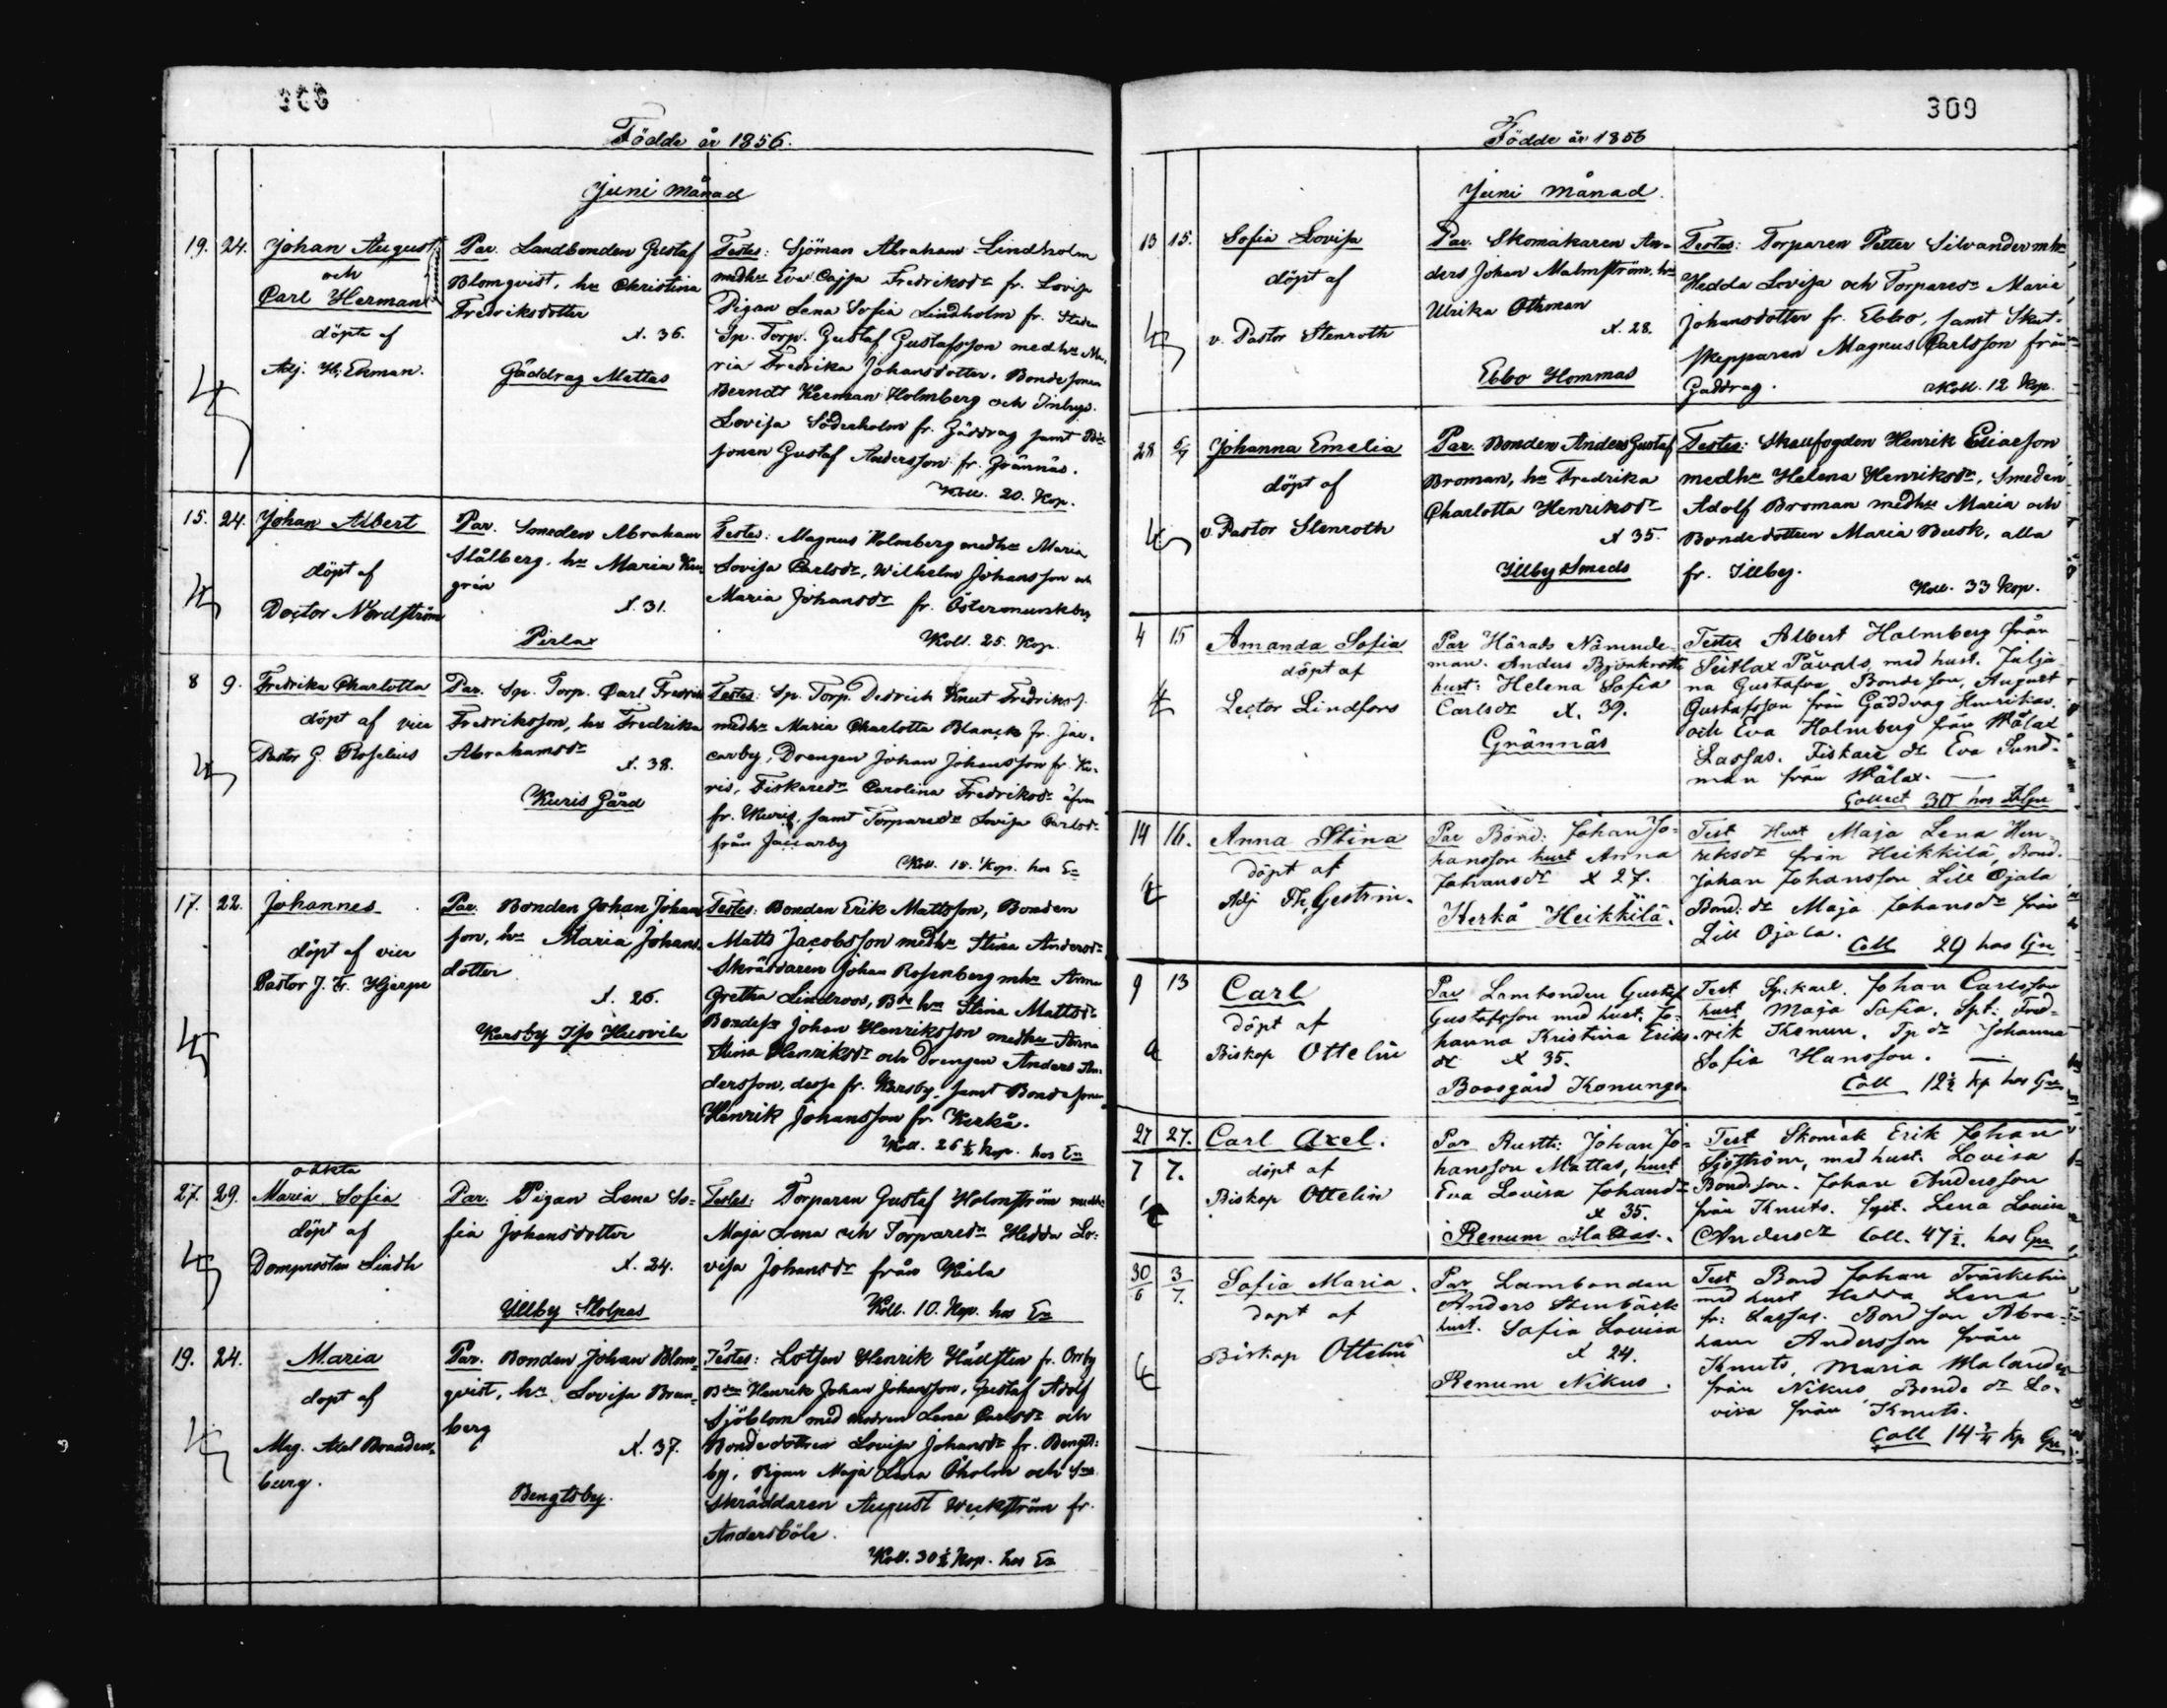 Födde år 1856.
Juni månad
19. 24. Johan August
och
Carl Herman
döpte af
Adj. Hj. Ekman.
Par. Landbonden Gustaf
Blomqvist, hu Christina
Fredriksdotter
X. 36.
Gäddrag Mattas
Testes: Sjöman Abraham Lindholm
medhu Eva Cajsa Fredriksdr fr. Lovisa
Pigan Lena Sofia Lindholm fr. Staden
Sp. Torp. Gustaf Gustafsson medhu Ma-
ria Fredrika Johansdotter, Bondesonen
Berndt Herman Holmberg och Inhys.
Lovisa Söderholm fr. Gäddrag samt
sonen Gustaf Andersson fr. Grännäs.
Koll. 20. Kop.
15. 24. Johan Albert
döpt af
Doctor Nordström
Par. Smeden Abraham
Stålberg, hu Maria
grén
X. 31.
Pirlax
Testes: Magnus Holmberg medhu Maria
Lovisa Carlsdr, Wilhelm Johansson och
Maria Johansdr fr. Östermunkby
Koll. 25. Kop.
8 9. Fredrika Charlotta
döpt af vice
Pastor G. Roselius
Par. Sp. Torp. Carl Fredrik
Fredriksson, hu Fredrika
Abrahamsdr
X. 38.
Kuris Gård
Testes: Sp. Torp. Dedrich Knut Fredrikss.
medhu Maria Charlotta Blanck fr. Jac-
carby, Drengen Johan Johansson fr. Ku-
ris, Fiskaredr Carolina Fredriksdr äfven
fr. Kuris, samt Torparedr Lovisa Carlsdr
från Jaccarby
Koll. 15. Kop. hos En
17. 22. Johannes
döpt af vice
Pastor J. Fr. Hjerpe
Par. Bonden Johan Johans-
son, hu Maria Johans-
dotter
X. 26.
Karsby Iso Husvila
Testes: Bonden Erik Mattsson, Bonden
Matts Jacobsson medhu Stina Andersdr
Skräddaren Johan Rosenberg mhu Anna
Gretha Lindroos, Bde hu Stina Mattsdr
Bondesn Johan Henriksson medhu Anna
Stina Henriksdr och Drengen Anders An-
dersson, desse fr. Karsby, samt Bondesonen
Henrik Johansson fr. Kerkå.
Koll. 26 ½ Kop. hos En
oäkta
27. 29. Maria Sofia
döpt af
Domprosten Lindh
Par. Pigan Lena So-
fia Johansdotter
X. 24.
Illby Stolpas
Testes: Torparen Gustaf Holmström medhu
Maja Lena och Torparedn Hedda Lo-
visa Johansdr från Kiila
Koll. 10. Kop. hos En
19. 24. Maria
döpt af
Mag. Axel Branden-
burg.
Par. Bonden Johan Blom-
qvist, hu Lovisa Bran-
berg
X. 37.
Bengtsby.
Testes: Lotsen Henrik Hädstén fr. Orrby
Bden Henrik Johan Johansson, Gustaf Adolf
Sjöblom med modren Lena Carlsdr och
Bondedottren Lovisa Johansdr fr. Bengts-
by, Pigan Maja Lena Öholm och
Skräddaren August Weckström fr.
Andersböle.
Koll. 30 ½ Kop. hos En
309
Födde år 1856
Juni månad.
13 15. Sofia Lovisa
döpt af
v. Pastor Stenroth
Par. Skomakaren An-
ders Johan Malmström, hu
Ulrika Othman
X. 28.
Ebbo Hommas
Testes: Torparen Petter Silvander mhu
Hedda Lovisa och Torparedr Maria
Johansdotter fr. Ebbo, samt Skut-
skepparen Magnus Carlsson från
Gäddrag. Koll. 12 Kop.
28 6/7 Johanna Emelia
döpt af
v. Pastor Stenroth
Par. Bonden Anders Gustaf
Broman, hu Fredrika
Charlotta Henriksdr
X 35.
Illby Smeds
Testes: Skallfogden Henrik Eliasson
medhu Helena Henriksdr, Smeden
Adolf Broman medhu Maria och
Bondedottren Maria Busk, alla
fr. Illby.
Koll. 33 Kop.
4 15 Amanda Sofia
döpt af
Lector Lindfors
Par Härads Nämnde-
man. Anders Björnkrott
hust: Helena Sofia
Carlsdr X. 39.
Grännäs
Testes Albert Holmberg från
Seitlax Påvals, med hust. Julja-
na Gustafva, Bondeson, August
Gustafsson från Gäddrag Henrikas.
och Eva Holmberg från Wålax
Lassas. Fiskare dr Eva Sund-
man från Wålax.
Collect 30 hos
14 16. Anna Stina
döpt af
Adj Th. Gestrin.
Par Bond: Johan Jo-
hansson hust Anna
Johansdr X 27.
Kerkå Heikkilä.
Test Hust Maja Lena Hen-
riksdr från Heikkilä, Bond.
Johan Johansson Lill Ojala
Bond: dr Maja Johansdr från
Lill Ojala.
Coll 29 hos Gn
9 13 Carl
döpt af
Biskop Ottelin
Par Lanbonden Gustaf
Gustafsson med hust. Jo-
hanna Kristina Eriks-
dr X 35.
Boosgård Konungs.
Test Sp: karl. Johan Carlsson
hust Maja Sofia, Spt: Fred-
rik Konun. Tp dr Johanna
Sofia Hansson.
Coll 12 ½ kp hos Gn
27 27. Carl Axel.
7 7. döpt af
Biskop Ottelin
Par Rustth: Johan Jo-
hansson Mattas, hust
Eva Lovisa Johansdr
X 35.
Renum Mattas.
Test Skomak Erik Johan
Sjöström, med hust. Lovisa
Bondeson. Johan Andersson
från Knuts. Lena Lovisa
Andersdr Coll. 47 ½ hos Gn
30/6 3/7. Sofia Maria.
döpt af
Biskop Ottelin
Par Lambonden
Anders Stenbäck
hust. Sofia Lovisa
X 24.
Renum Nikus.
Test Bond Johan Träskelin
med hust Hedda Lena
fr: Lassas. Bondson Abra-
ham Andersson från
Knuts, Maria Malander
från Nikus Bonde dr Lo-
visa från Knuts.
Coll 14 kp Gn